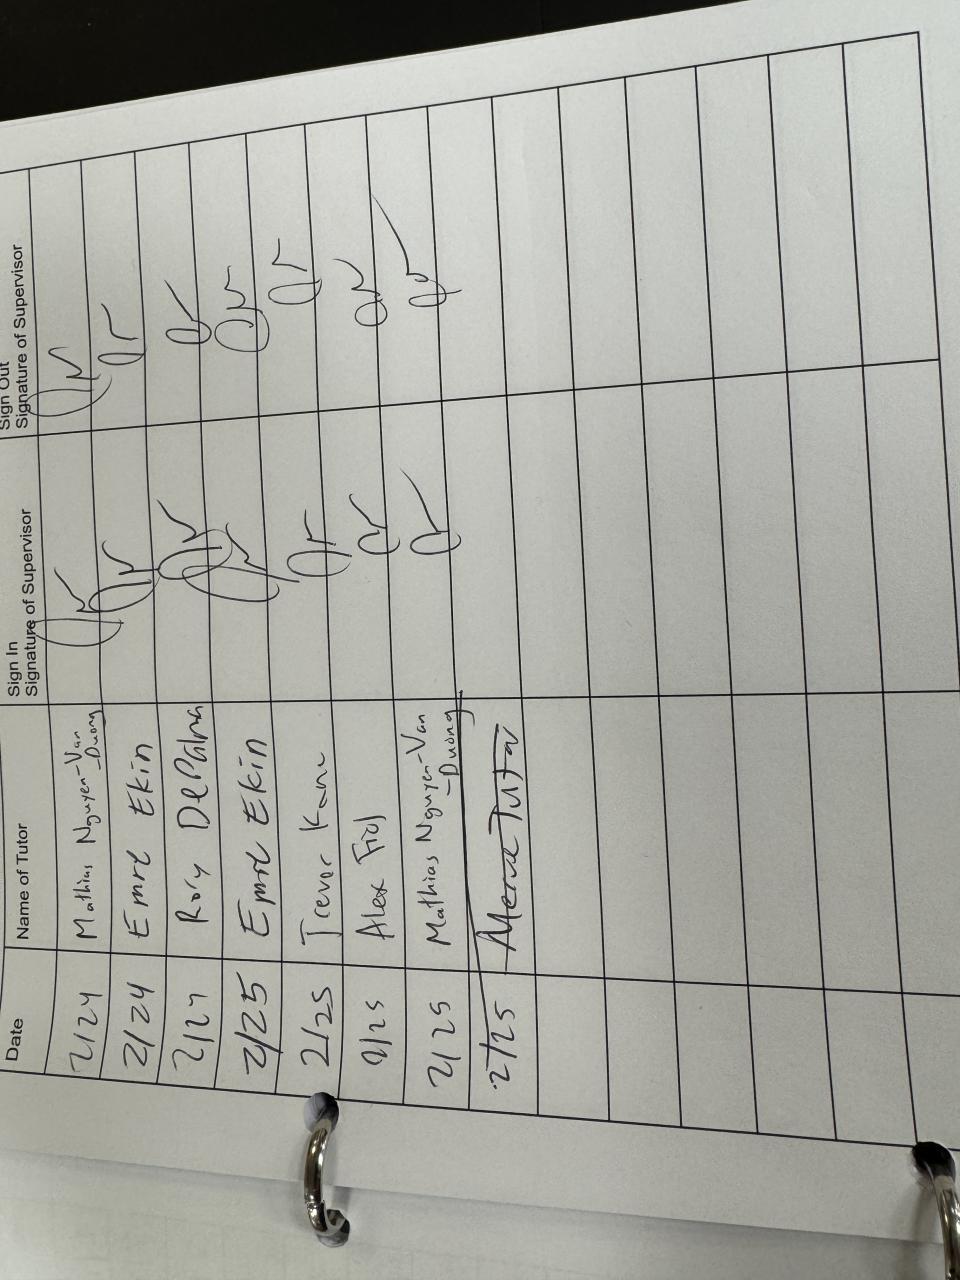 Date Name of Tutor Sign In Signature of Supervisor Sign Out Signature of Supervisor
2/24 Mathias Nguyen-Van-Duong
2/24 Emre Ekin
2/27 Rory DePalma
2/25 Emre Ekin
2/25 Trevor Kane
2/25 Alex Fiol
2/25 Mathias Nguyen-Van-Duong
2/25